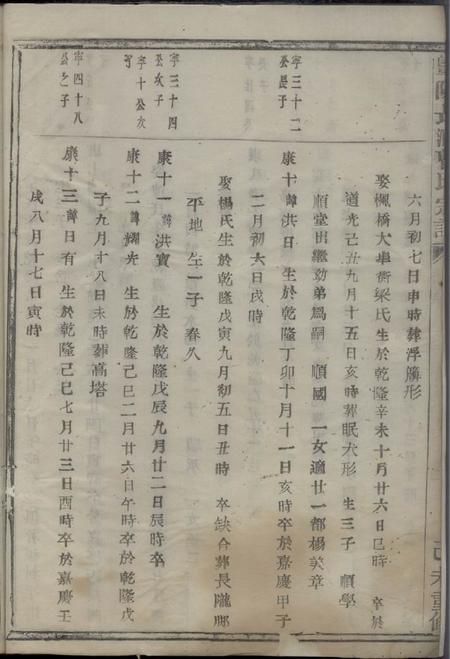 六月初七日申時葬浮牌形
娶楓橋大畢街梁氏生於乾隆辛未十月廿六日巳時 卒於
道光己丑九月十五日亥時葬眠犬形 生三子 順學
順堂出繼幼弟爲嗣 順國 一女適廿一都楊美章
字三十二
公長子
康十 諱洪日 生於乾隆丁卯十月十一日亥時卒於嘉慶甲子
二月初六日戌時
娶楊氏生於乾隆戊寅九月初五日丑時 卒缺合葬長隴
平地 生一子 春久
字三十四
公次子
康十一諱洪寶 生於乾隆戊辰九月廿二日辰時卒
字十公次
子
康十二諱耀光 生於乾隆己巳二月廿六日午時卒於乾隆戊
子九月十八日未時葬高塔
字四十八
公之子
康十三諱日有 生於乾隆己巳七月廿三日酉時卒於嘉慶壬
戌八月十七日寅時